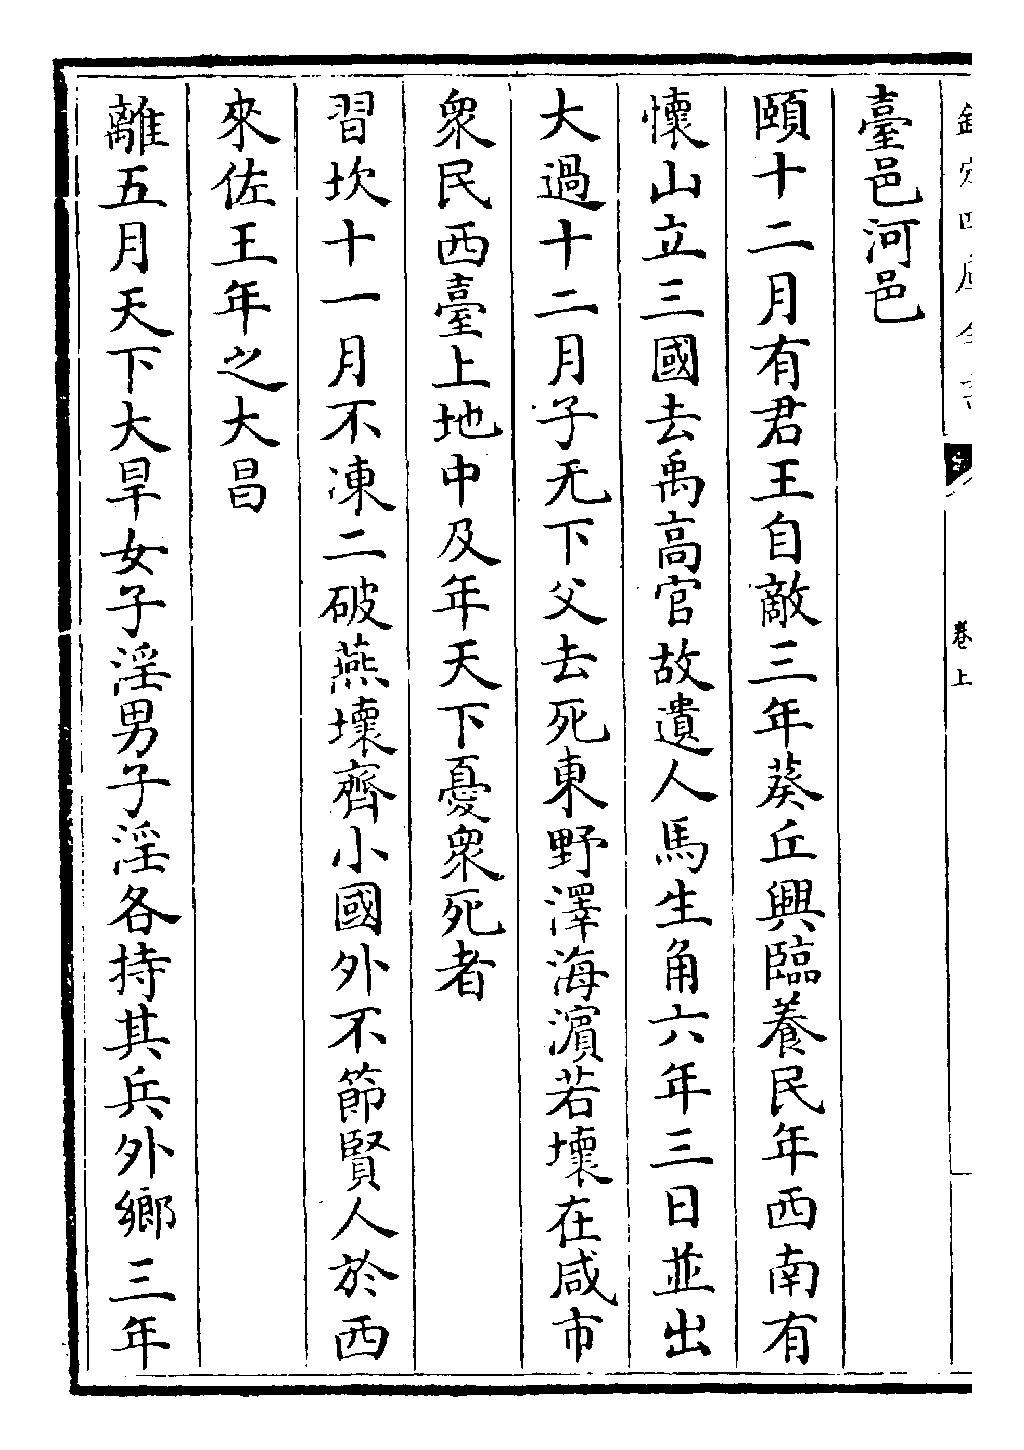 欽定四庫全書
卷上
臺邑河邑
頤十二月有君王自敵三年葵丘興臨養民年西南有
懷山立三國去禹高官故遺人馬生角六年三日並出
大過十二月子无下父去死東野澤海濵若壞在咸市
衆民西臺上地中及年天下憂衆死者
習坎十一月不凍二破燕壞齊小國外不節賢人於西
來佐王年之大昌
離五月天下大旱女子淫男子淫各持其兵外鄉三年